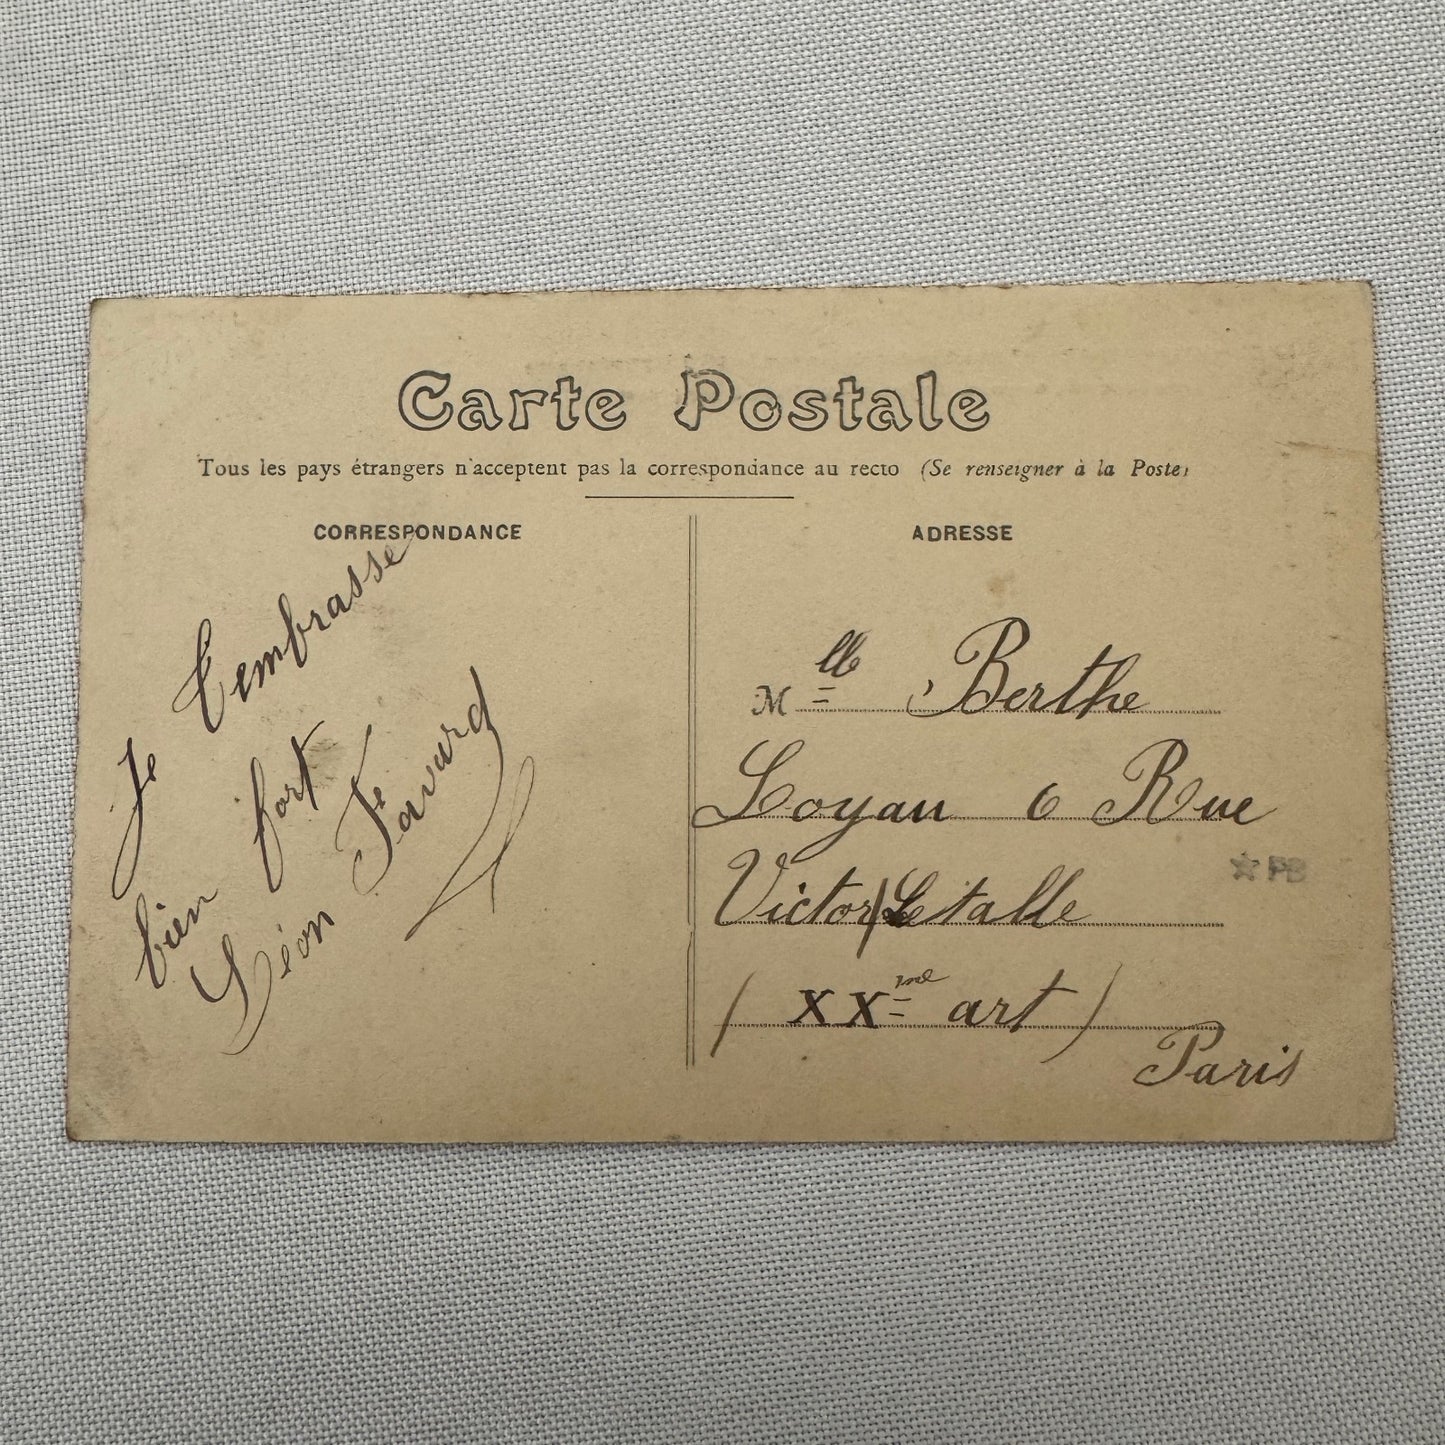 Carte Postale
Tous les pays étrangers n'acceptent pas la correspondance au recto (Se renseigner à la Poste)
CORRESPONDANCE
Je t'embrasse
bien fort
Léon Favard
ADRESSE
Mlle Berthe
Loyau 6 Rue
Victor Letalle
(XXme art)
Paris
☆ PB